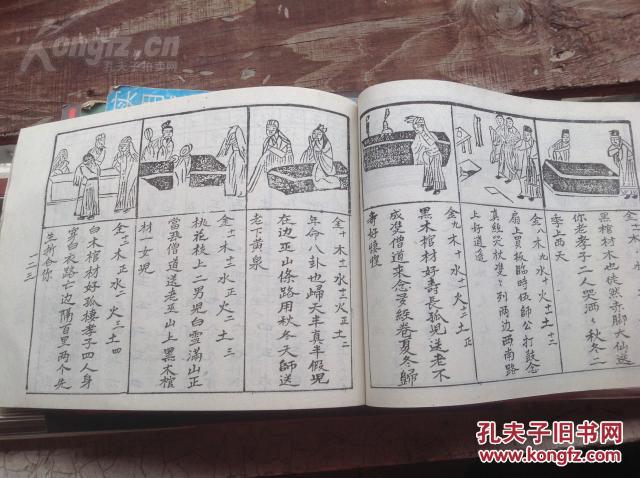 Kongfz.cn
孔夫子拍卖网
金
木
土
黑棺材木也徒然赤脚大仙送
你老孝子二人哭洒洒秋冬二
季上西天
金八木九水十火十一土十二
扇上買板臨時伍師公打鼓念
列两边两南路
上好逍遥
金九木十水十一火十二土正
黑木棺材好壽長孤児送老不
成双僧道来念多經卷夏冬歸
壽好悽惶
金十木十一水十二火正土二
年命八卦也歸天半真半假児
在边巫山條路用秋冬天師送
老下黄泉
金十一木十二水正火二土三
桃花枝上二男児白雪滿山正
當死僧道送老巫山上黑木棺
材一女児
金十二木正水二火三土四
白木棺材好孤棲孝子四人身
穿白衣路亡边隔百里两个先
生拆合你
一二三
孔夫子旧书网
www.kongfz.com